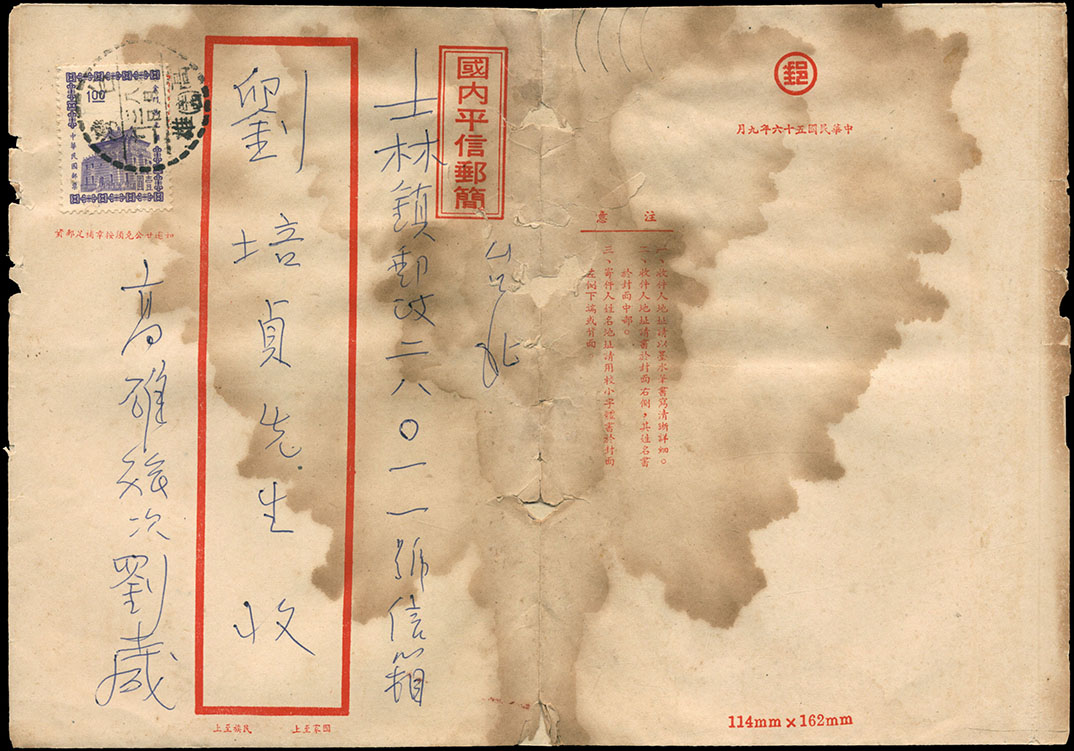 郵
中華民國五十六年九月
注意
一、收件人地址請以墨水筆書寫清晰詳細。
二、收件人地址請書於封面右側，其姓名書
於封面中部。
三、寄件人姓名地址請用較小字體書於封面
左側下端或背面。
114mm×162mm
國內平信郵簡
台北
士林鎮郵政二八〇一一號信箱
劉培貞先生收
國家至上 民族至上
1.00
中華民國郵票
高雄
如逾廿公克須按章補足郵資
高雄 次劉